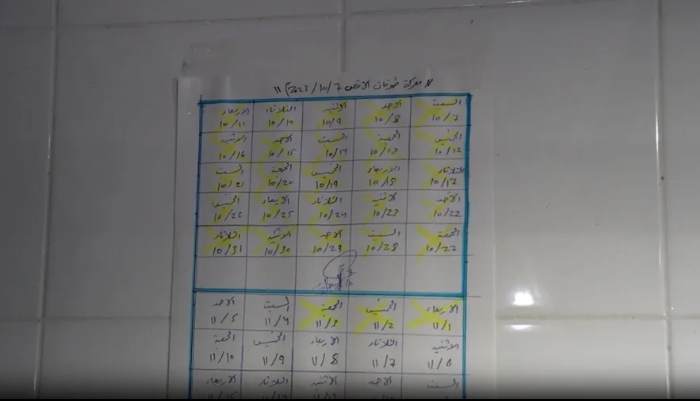 معركة طوفان الاقصى 2023/10/7
السبت الاحد الاثنين الثلاثاء الاربعاء
10/7 10/8 10/9 10/10 10/11
الخميس الجمعة السبت الاحد الاثنين
10/12 10/13 10/14 10/15 10/16
الثلاثاء الاربعاء الخميس الجمعة السبت
10/17 10/18 10/19 10/20 10/21
الأحد الاثنين الثلاثاء الاربعاء الخميس
10/22 10/23 10/24 10/25 10/26
الجمعة السبت الاحد الاثنين الثلاثاء
10/27 10/28 10/29 10/30 10/31
الاربعاء الخميس الجمعة السبت الاحد
11/1 11/2 11/3 11/4 11/5
الاثنين الثلاثاء الاربعاء الخميس الجمعة
11/6 11/7 11/8 11/9 11/10
السبت الاحد الاثنين الثلاثاء الاربعاء